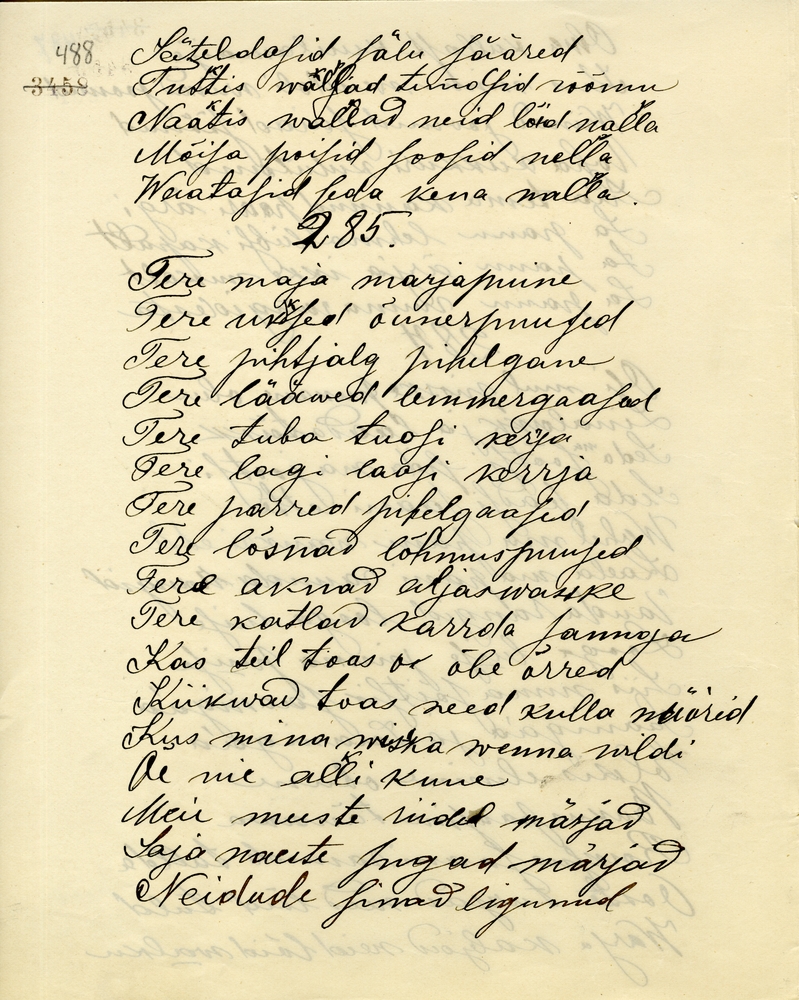 488
3458
Säteldasid sälu sääred
Tuttis wallad tundsid rõõmu
Naatis wallad neid lõid nalla
Mõisa poisid soosid nella
Waatasid seda kena nalla.
285.
Tere maja marjapuine
Tere uksed õunerpuused
Tere pihtjalg pihelgane
Tere lääwed lemmergaased
Tere tuba tuosi kerja
Tere lagi laasi kerrja
Tere parred pihelgaased
Tere lõsnad lõhmuspuused
Tere aknad aljaswaske
Tere katlad karrda sannga
Kas teil toas o õbe õrred
Kiikwad toas need kulla nöörid
Kus mina wiska wenna wildi
Õe nie alli kuue
Meie meeste riided märjad
Saja naeste sugad märjad
Neidude sinad ligunud